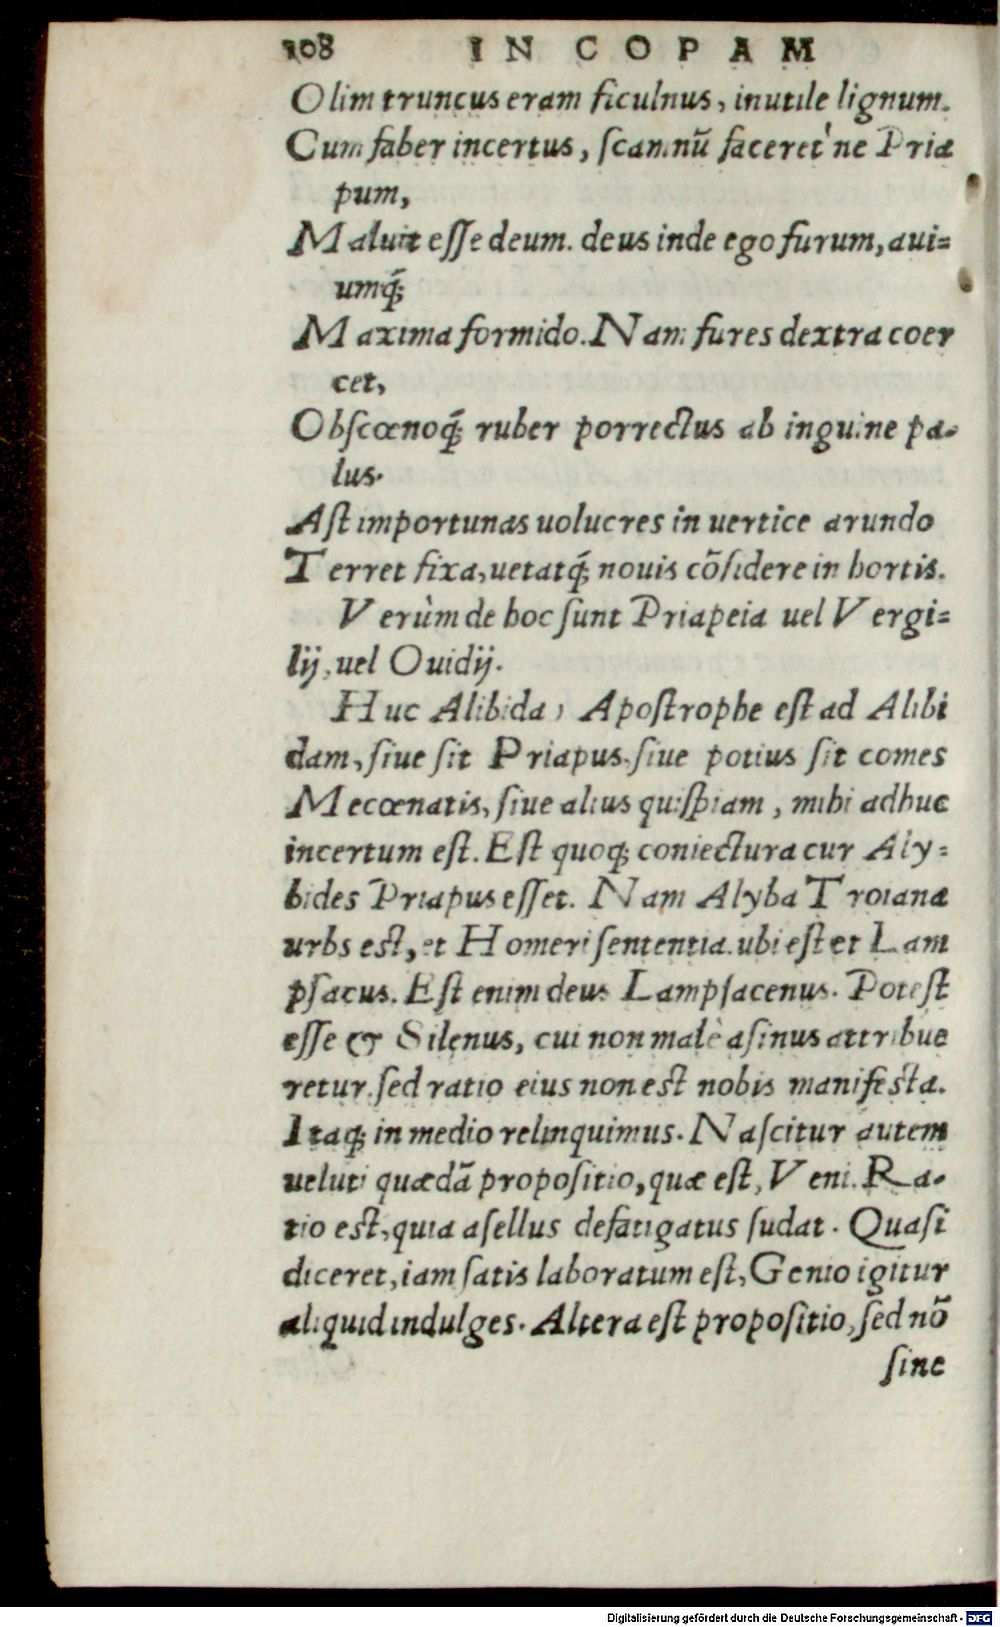 108 IN COPAM
Olim truncus eram ficulnus, inutile lignum.
Cum faber incertus, ſcamnũ faceret'ne Pria
pum,
Maluit eſſe deum. deus inde ego furum, aui=
umq́;
Maxima formido. Nam fures dextra coer
cet,
Obſcœnoq́; ruber porrectus ab inguine pa-
lus.
Aſt importunas uolucres in uertice arundo
Terret fixa, uetatq́; nouis cõſidere in hortis.
Verùm de hoc ſunt Priapeia uel Vergi=
lij, uel Ouidij.
Huc Alibida, Apoſtrophe eſt ad Alibi
dam, ſiue ſit Priapus, ſiue potius ſit comes
Mecœnatis, ſiue alius quiſpiam, mihi adhuc
incertum eſt. Eſt quoq; coniectura cur Aly=
bides Priapus eſſet. Nam Alyba Troiana
urbs eſt, et Homeri ſententia. ubi eſt et Lam
pſacus. Eſt enim deus Lampſacenus. Poteſt
eſſe & Silenus, cui non malè aſinus attribue
retur. ſed ratio eius non eſt nobis manifeſta.
Itaq; in medio relinquimus. Naſcitur autem
ueluti quædã propoſitio, quæ eſt, Veni. Ra-
tio eſt, quia aſellus defatigatus ſudat. Quaſi
diceret, iam ſatis laboratum eſt, Genio igitur
aliquid indulges. Altera eſt propoſitio, ſed nõ
ſine
Digitalisierung gefördert durch die Deutsche Forschungsgemeinschaft - DFG